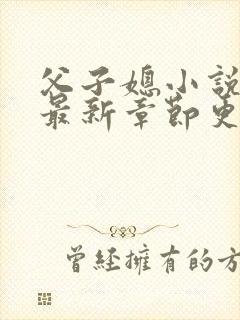 父子媳小說
最新章節更
曾經擁有的方